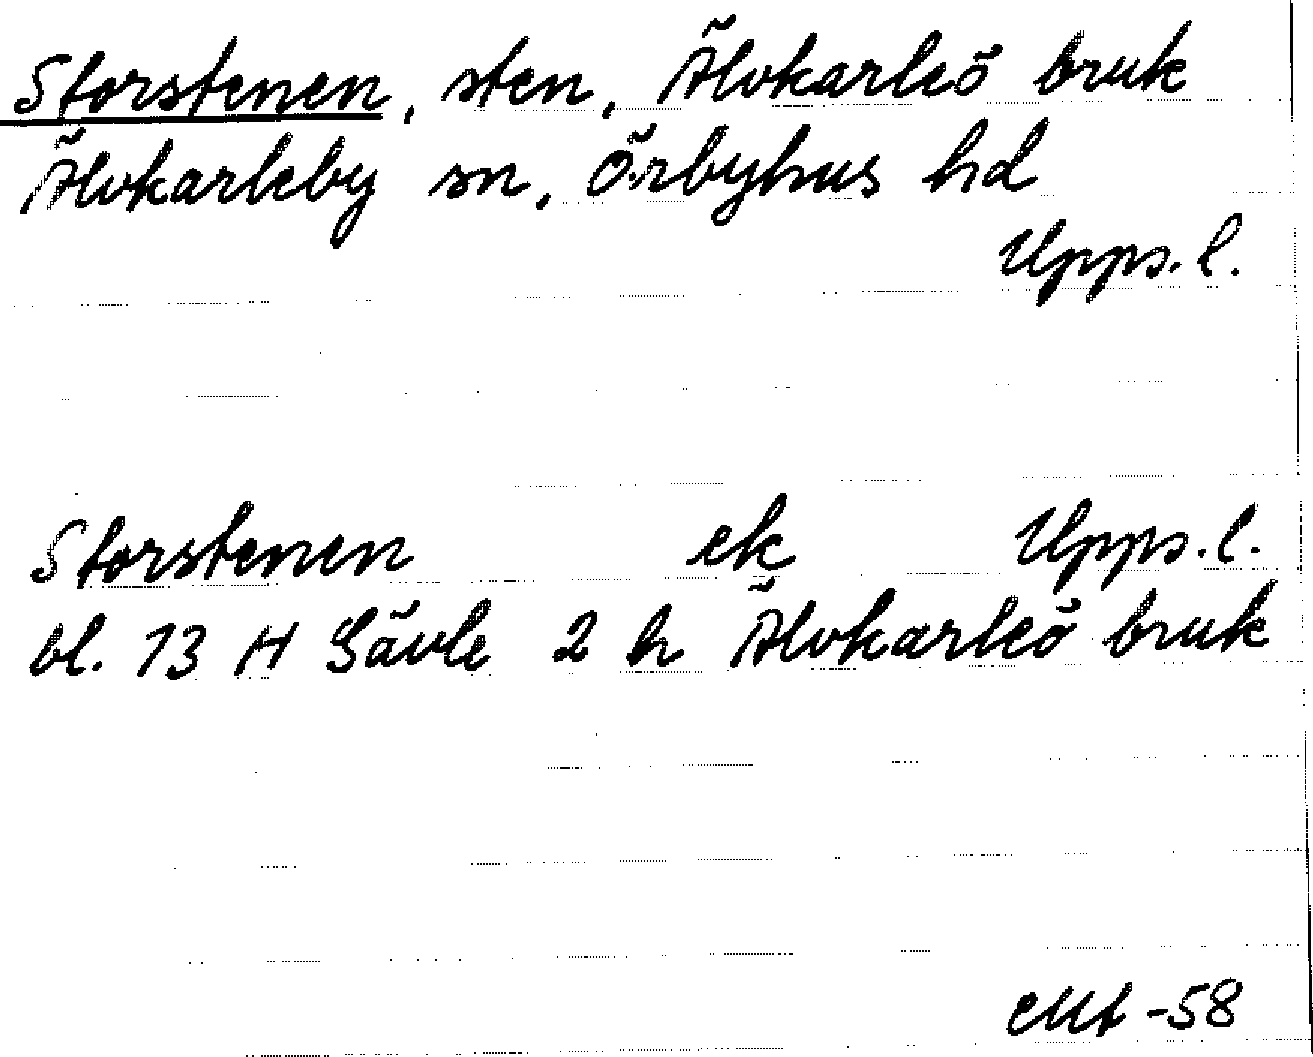 Storstenen, sten, Älvkarleö bruk
Älvkarleby sn, Örbyhus hd
Upps. l.
Storstenen ek Upps. l.
bl. 13 H Gävle 2 h Älvkarleö bruk
-58